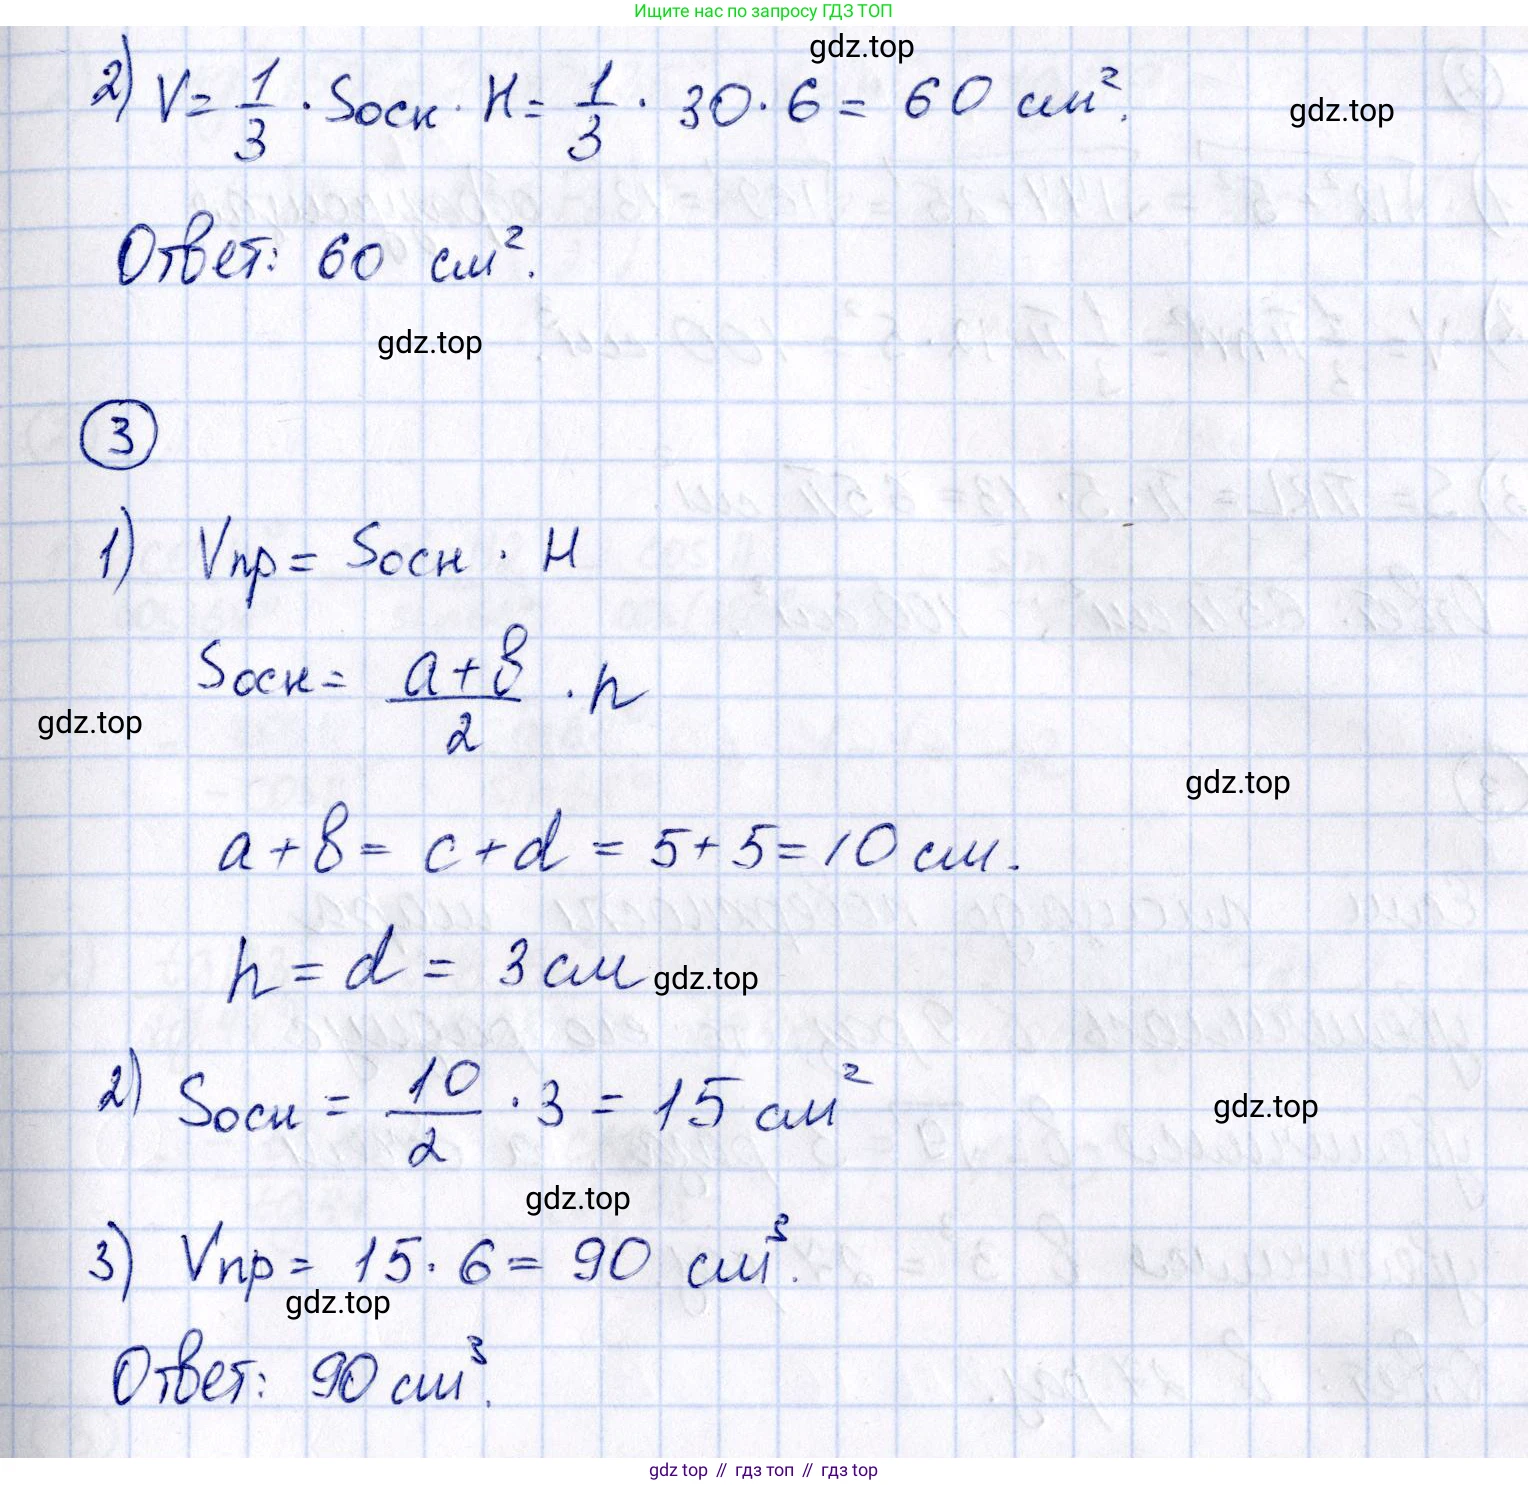 Ищите нас по запросу ГДЗ ТОП
gdz.top
2) V = 1/3 · Sосн · H = 1/3 · 30 · 6 = 60 см².
gdz.top
Ответ: 60 см².
gdz.top
3
1) Vпр = Sосн · H
Sосн = (a+b)/2 · h
gdz.top
gdz.top
a + b = c + d = 5 + 5 = 10 см.
h = d = 3 см
gdz.top
2) Sосн = 10/2 · 3 = 15 см²
gdz.top
gdz.top
3) Vпр = 15 · 6 = 90 см³.
gdz.top
Ответ: 90 см³.
gdz top // гдз топ // гдз top